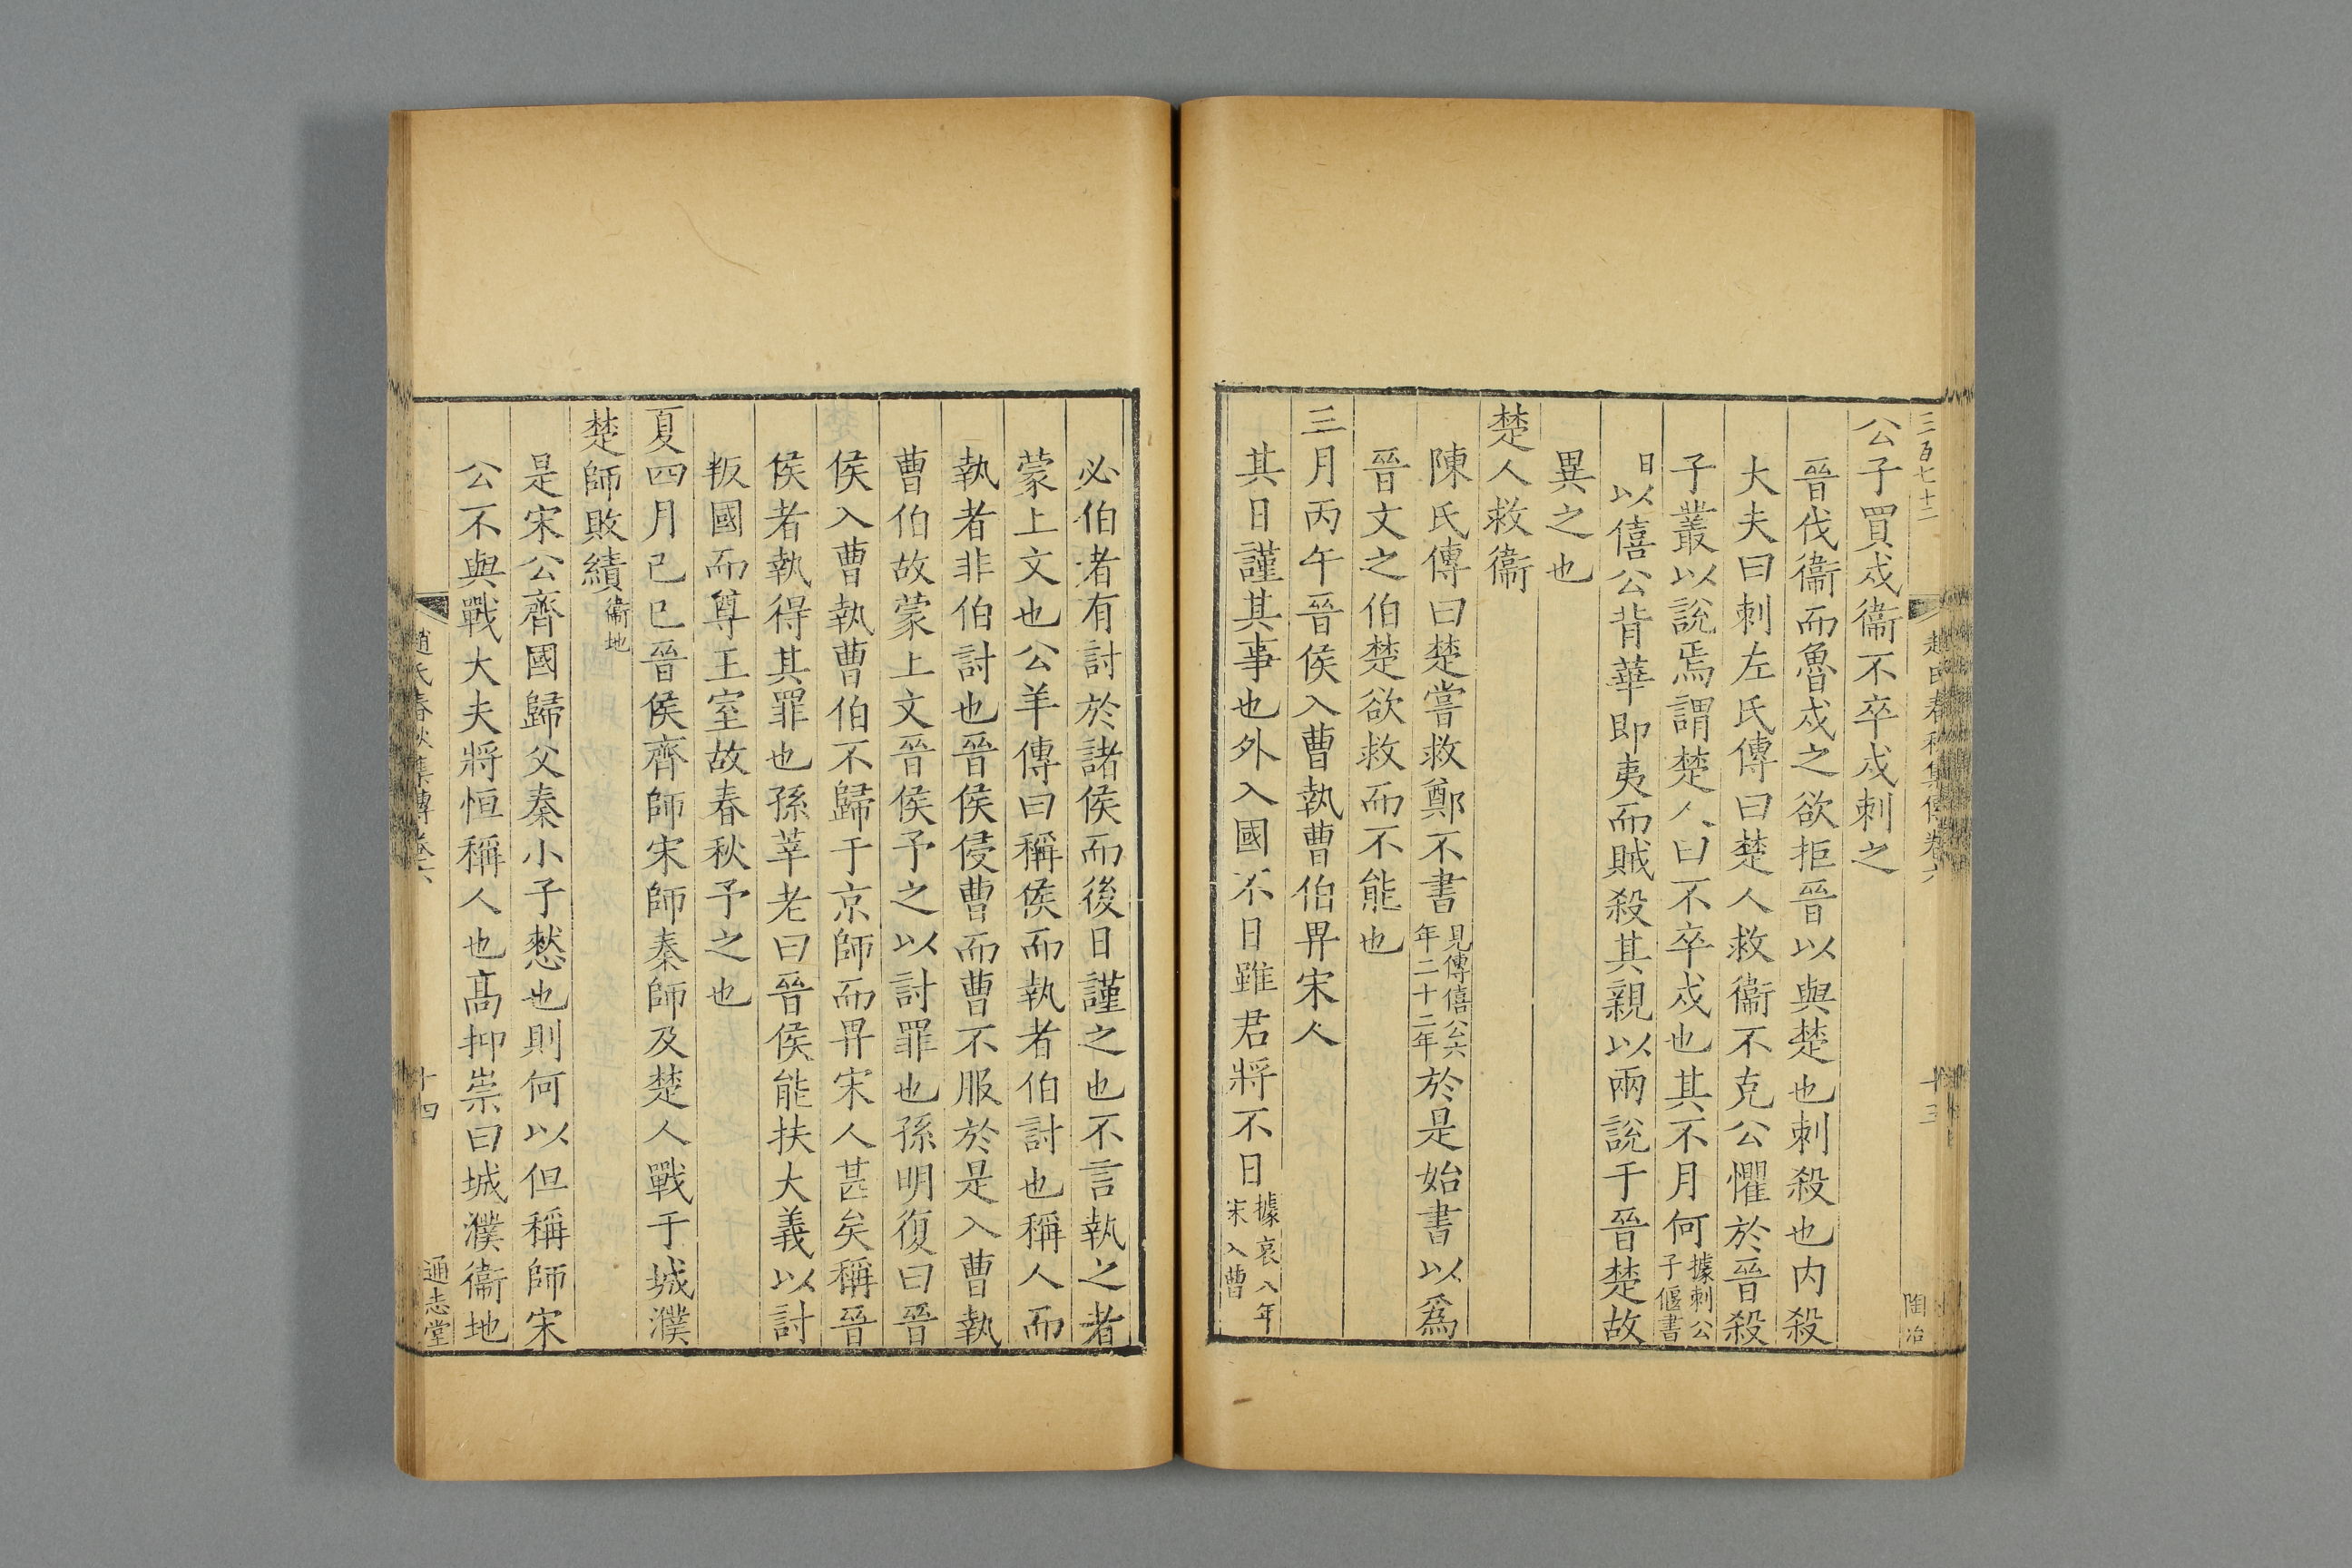 三百七十二
趙氏春秋集傳卷六
十三
陶冶
公子買戍衞不卒戍刺之
晉伐衞而魯戍之欲拒晉以與楚也刺殺也内殺
大夫曰刺左氏傳曰楚人救衞不克公懼於晉殺
子叢以說焉謂楚人曰不卒戍也其不月何據刺公子偃書
日以僖公背華即夷而賊殺其親以兩說于晉楚故
異之也
楚人救衞
陳氏傳曰楚嘗救鄭不書見傳僖公六年二十二年於是始書以爲
晉文之伯楚欲救而不能也
三月丙午晉侯入曹執曹伯畀宋人
其日謹其事也外入國不日雖君將不日據哀八年宋入曹
必伯者有討於諸侯而後日謹之也不言執之者
蒙上文也公羊傳曰稱侯而執者伯討也稱人而
執者非伯討也晉侯侵曹而曹不服於是入曹執
曹伯故蒙上文晉侯予之以討罪也孫明復曰晉
侯入曹執曹伯不歸于京師而畀宋人甚矣稱晉
侯者執得其罪也孫莘老曰晉侯能扶大義以討
叛國而尊王室故春秋予之也
夏四月己巳晉侯齊師宋師秦師及楚人戰于城濮
楚師敗績衞地
是宋公齊國歸父秦小子憖也則何以但稱師宋
公不與戰大夫將恒稱人也髙抑崇曰城濮衞地
趙氏春秋集傳卷六
十四
通志堂